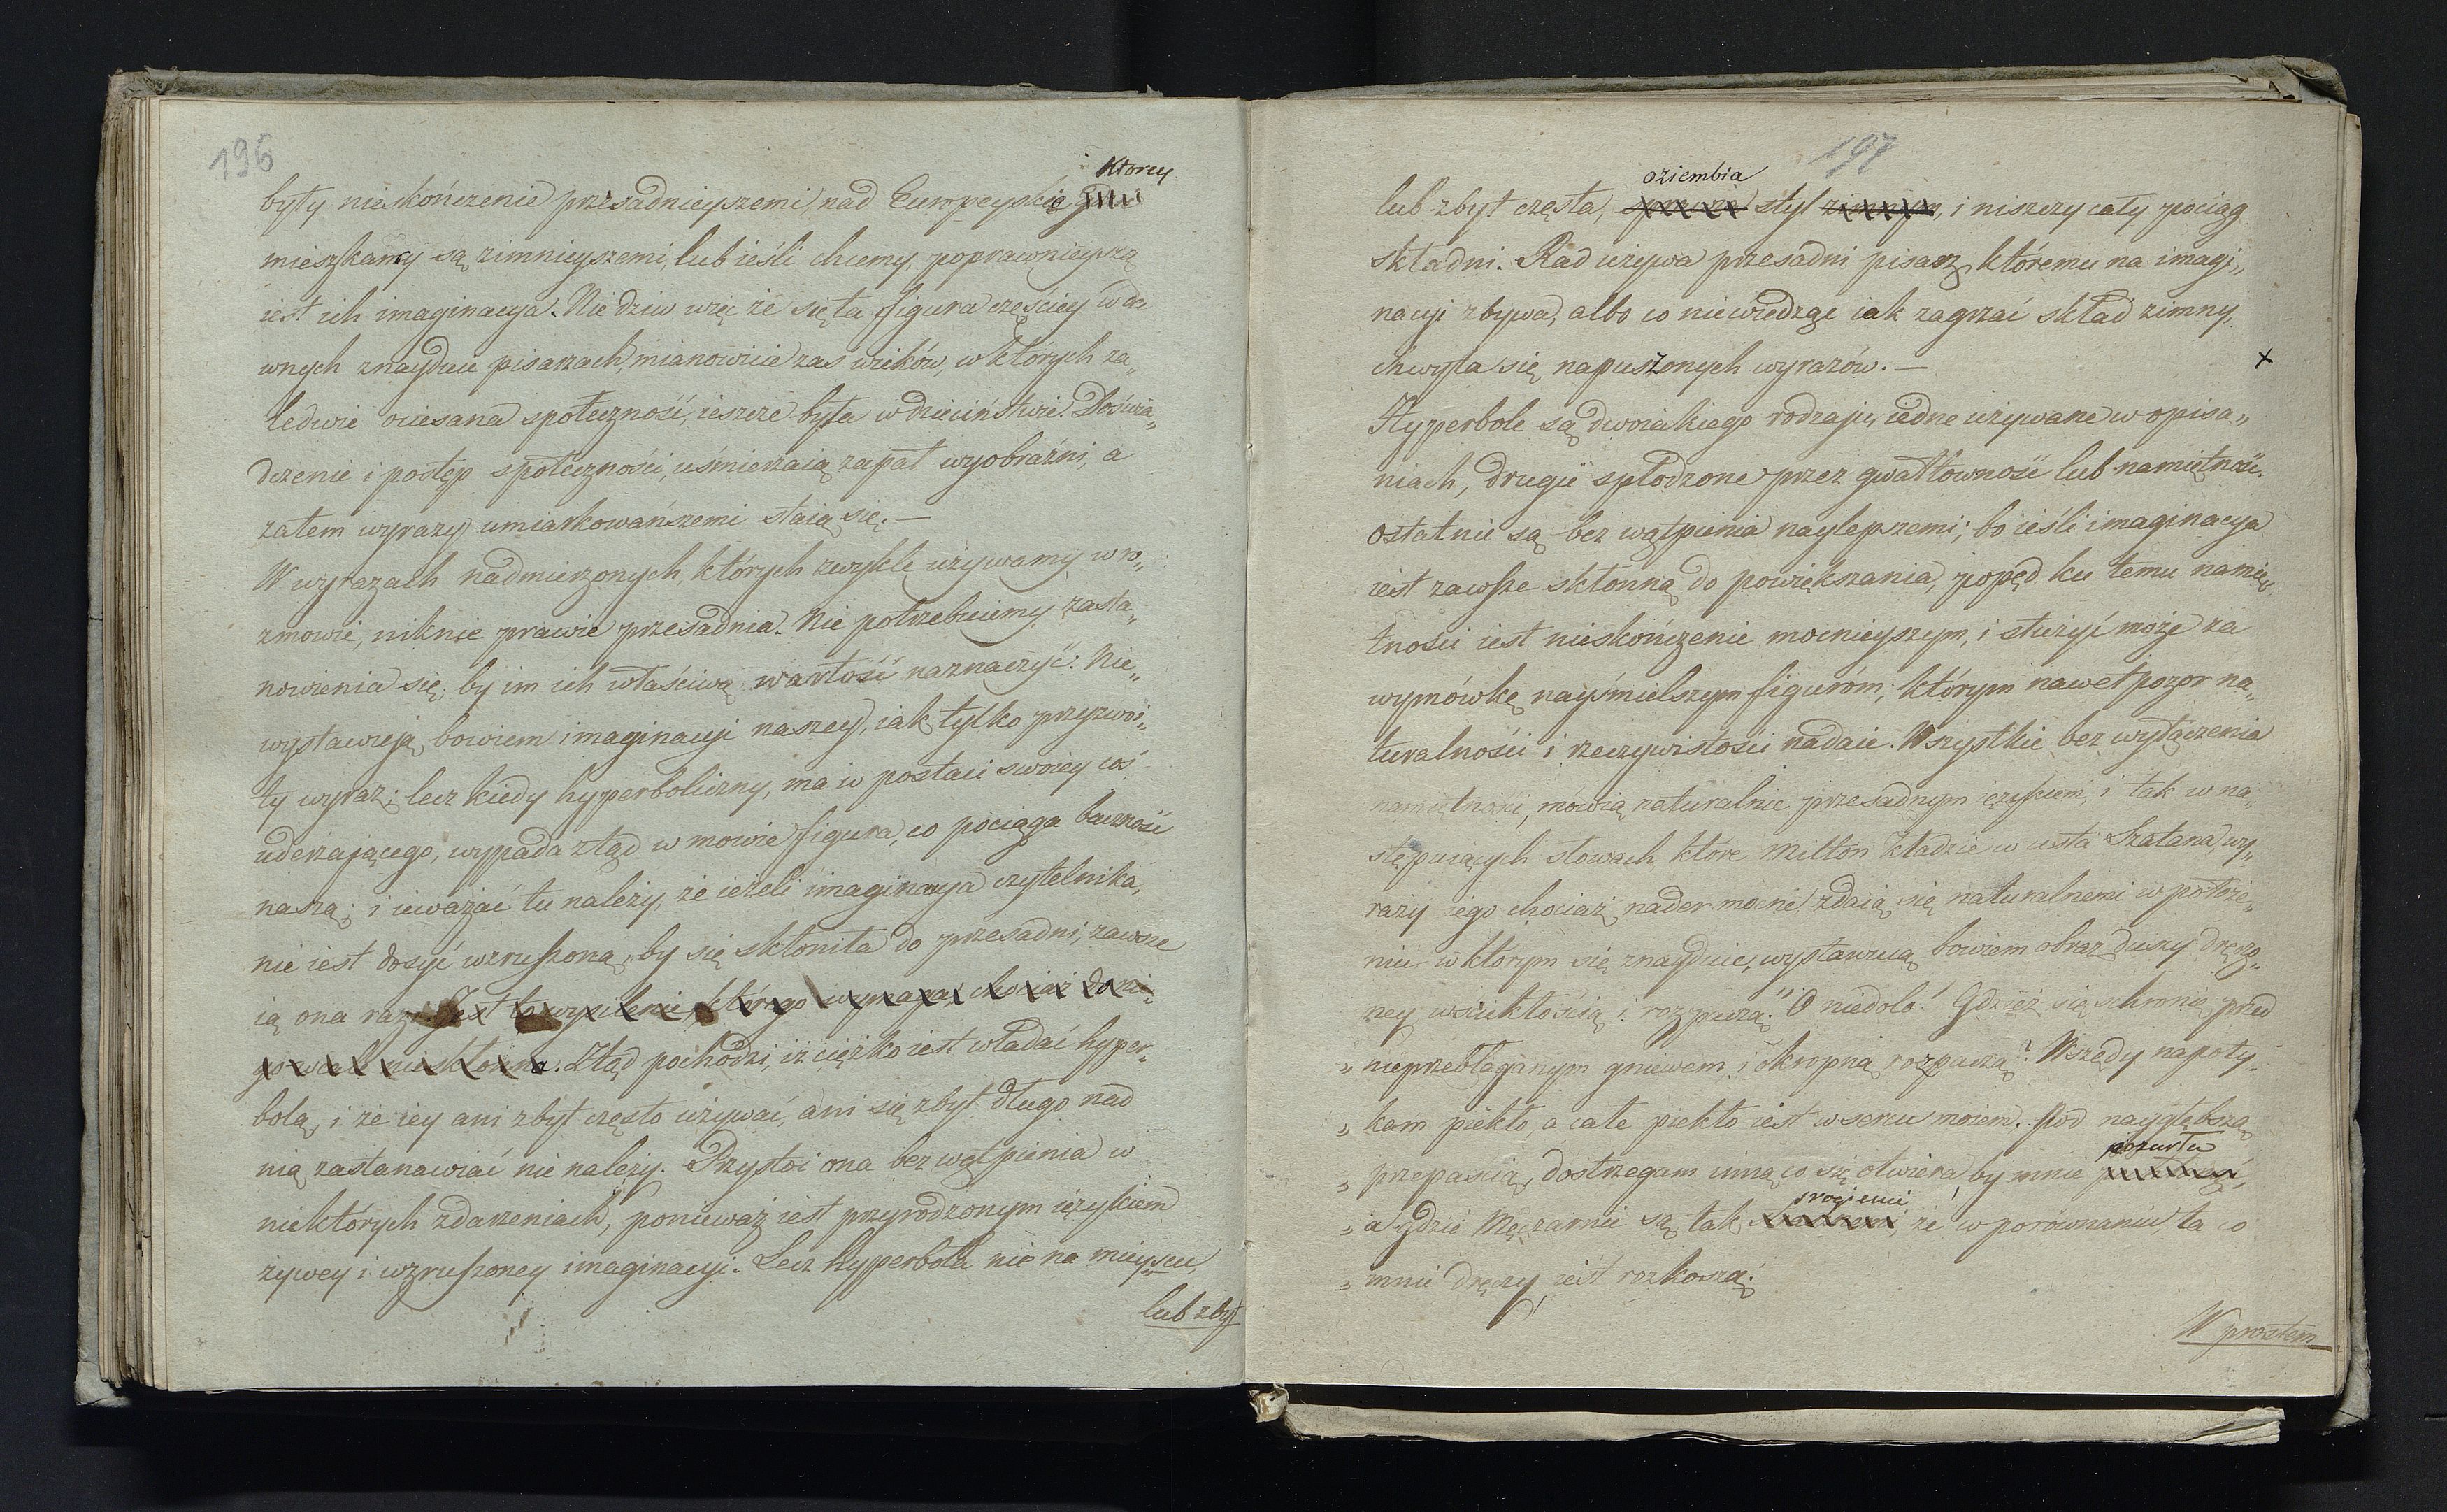 196
Ktorey
były nieskończenie przesadnieyszemi, nad Europeyskie
mieszkańcy są zimnieyszemi, lub ieśli chcemy, poprawnieyszą
iest ich imaginacya. Nie dziw więc że się ta figura częściey w da„
wnych znayduie pisarzach, mianowicie zaś wieków, w których za„
ledwie ociesana społeczność, ieszcze była w dzieciństwie. Doświa„
dczenie i postęp społeczności, uśmierzaią zapał wyobraźni, a
zatem wyrazy umiarkowańszemi staią się. —
W wyrazach nadmierzonych, których zwykle używamy w ro„
zmowie, niknie prawie przesadnia. Nie potrzebuiemy zasta„
nowienia się, by im ich właściwą wartość naznaczyć: Nie„
wystawują bowiem imaginacyi naszey, iak tylko przyzwoi„
ty wyraz; lecz kiedy hyperboliczny, ma w postaci swoiey coś
uderzającego, wypada ztąd w mowie figura, co pociąga baczność
naszą; i uważać tu należy, że ieżeli imaginacya czytelnika,
nie iest dosyć wzruszoną, by się skłoniła do przesadni, zawsze
ią ona razi. Jest to wysilenie, którego wymaga, chociaż do nie„
go wcale nieskłonna. Ztąd pochodzi, iż ciężko iest władać hyper„
bolą, i że iey ani zbyt często używać, ani się zbyt długo nad
nią zastanawiać nie należy. Przystoi ona bez wątpienia w
niektórych zdarzeniach, ponieważ iest przyrodzonym ięzykiem
żywey i wzruszoney imaginacyi. Lecz hyperbola nie na mieyscu,
lub zbyt
197
oziembia
lub zbyt częsta, styl zimnym, i niszczy cały pociąg
składni. Rad używa przesadni pisarz, któremu na imagi„
nacyi zbywa, albo co niewiedząc iak zagrzać skład zimny,
chwyta się napuszonych wyrazów. — x
Hyperbole są dwoiakiego rodzaju, iedne używane w opisa„
niach, drugie spłodzone przez gwałtowność lub namiętność.
ostatnie są bez wątpienia naylepszemi; bo ieśli imaginacya
iest zawsze skłonną do powiększania, popęd ku temu namię„
tności iest nieskończenie mocnieyszym, i służyć może za
wymówkę nayśmielszym figuróm; którym nawet pozor na„
turalności i rzeczywistości nadaie. Wszystkie bez wyłączenia
namiętności, mówią naturalnie przesadnym ięzykiem, i tak w na„
stępuiących słowach, które Milton kładzie w usta Szatana, wy„
razy iego chociaż nader mocne zdaią się naturalnemi w położe„
niu w którym się znayduie, wystawuią bowiem obraz duszy dręczo„
ney wściekłością i rozpaczą: "O niedolo! Gdzież się schronię przed
„ nieprzebłaganym gniewem i okropną rozpaczą? Wszędy napoty„
„ kam piekło, a całe piekło iest w sercu moiem. Pod naygłębszą
„ przepaścią, dostrzegam inną co się otwiera, by mnie
pożarła
srogiemi
„ a gdzie Męczarnie są tak, że w porównaniu, ta co
„ mnie dręczy, iest rozkoszą.
W prostem